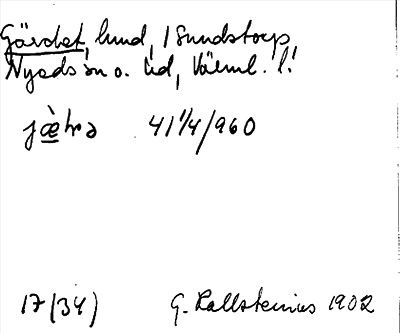 Gärdet, lund, / Sundstorp
Nyeds sn o. hd, Värml. l.
41 1/4/960
17 (34) G. Kallstenius 1902